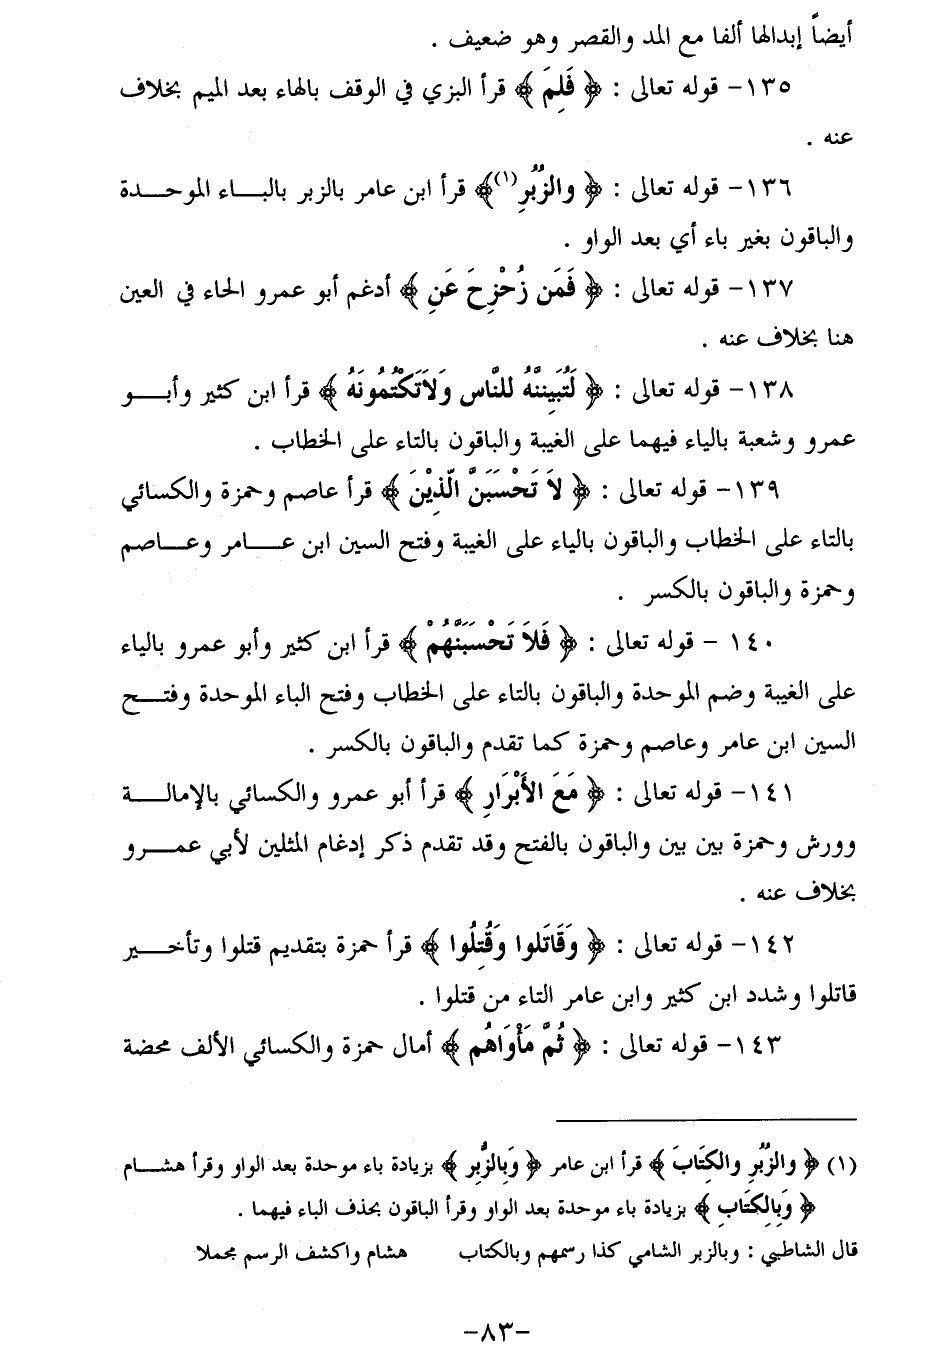 أيضاً إبدالها ألفا مع المد والقصر وهو ضعيف .
١٣٥- قوله تعالى : ﴿ فَلِمَ ﴾ قرأ البزي في الوقف بالهاء بعد الميم بخلاف
عنه .
١٣٦- قوله تعالى : ﴿ والزُّبُرِ(١)﴾ قرأ ابن عامر بالزبر بالباء الموحدة
والباقون بغير باء أي بعد الواو .
١٣٧- قوله تعالى : ﴿ فَمَن زُحْزِحَ عَنِ ﴾ أدغم أبو عمرو الحاء في العين
هنا بخلاف عنه .
١٣٨- قوله تعالى : ﴿ لَتُبَيِننَّهُ للنَّاس وَلاَتَكْتُمُونَهُ ﴾ قرأ ابن كثير وأبو
عمرو وشعبة بالياء فيهما على الغيبة والباقون بالتاء على الخطاب .
١٣٩- قوله تعالى : ﴿ لاَ تَحْسَبَنَّ الَّذِيْنَ ﴾ قرأ عاصم وحمزة والكسائي
بالتاء على الخطاب والباقون بالياء على الغيبة وفتح السين ابن عامر وعاصم
وحمزة والباقون بالكسر .
١٤٠ - قوله تعالى : ﴿ فَلاَ تَحْسَبَنَّهُمْ ﴾ قرأ ابن كثير وأبو عمرو بالياء
على الغيبة وضم الموحدة والباقون بالتاء على الخطاب وفتح الباء الموحدة وفتح
السين ابن عامر وعاصم وحمزة كما تقدم والباقون بالكسر .
١٤١- قوله تعالى : ﴿ مَعَ الأَبْرَارِ ﴾ قرأ أبو عمرو والكسائي بالإمالة
وورش وحمزة بين بين والباقون بالفتح وقد تقدم ذكر إدغام المثلين لأبي عمرو
بخلاف عنه .
١٤٢- قوله تعالى : ﴿ وَقَاتَلُوا وَقُتِلُوا ﴾ قرأ حمزة بتقديم قتلوا وتأخير
قاتلوا وشدد ابن كثير وابن عامر التاء من قتلوا .
١٤٣- قوله تعالى : ﴿ ثُمَّ مَأْوَاهُم ﴾ أمال حمزة والكسائي الألف محضة
(١) ﴿ والزُّبُرِ والكِتَابَ ﴾ قرأ ابن عامر ﴿ وَبِالزُّبِر ﴾ بزيادة باء موحدة بعد الواو وقرأ هشام
﴿ وَبِالكِتَابِ ﴾ بزيادة باء موحدة بعد الواو وقرأ الباقون بحذف الباء فيهما .
قال الشاطبي : وبالزبر الشامي كذا رسمهم وبالكتاب هشام واكشف الرسم مجملا
-٨٣-